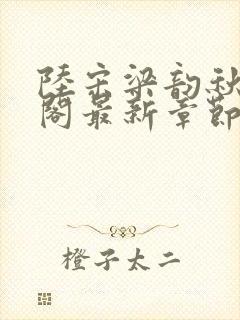 陸宗梁韵秋
閣最新章節
橙子太二